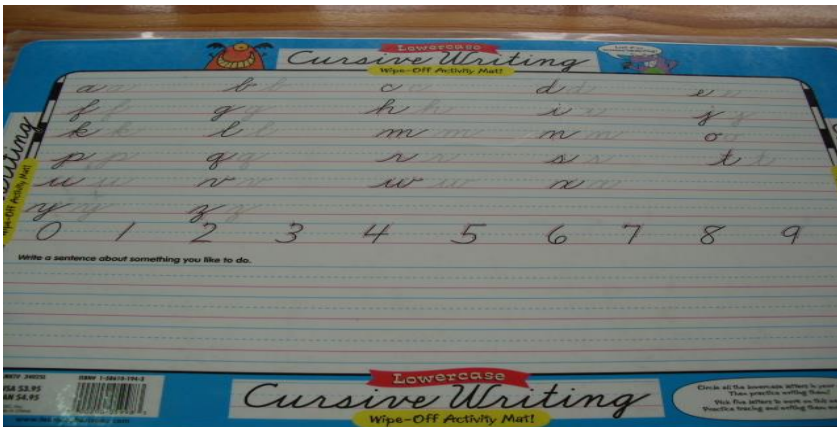 Lowercase
Cursive Writing
Wipe-Off Activity Mat!
a a b b c c d d e e
f f g g h h i i j j
k k l l m m n n o o
p p q q r r s s t t
u u v v w w x x
y y z z
0 1 2 3 4 5 6 7 8 9
Write a sentence about something you like to do.
Writing
Wipe-Off Activity Mat!
USA $3.95
CAN $4.95
Lowercase
Cursive Writing
Wipe-Off Activity Mat!
Circle all the lowercase letters in your
Then practice writing them!
Pick five letters to work on this
Practice tracing and writing them